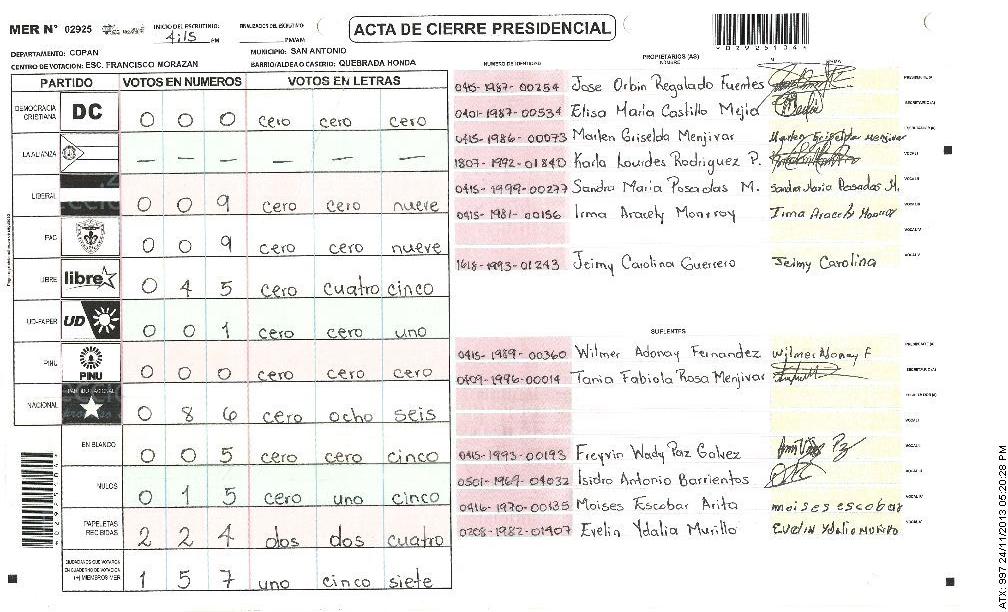 MER Nº 02925
INICIO DEL ESCRUTINIO: 4:15 PM
FINALIZACION DEL ESCRUTINIO: PM/AM
ACTA DE CIERRE PRESIDENCIAL
DEPARTAMENTO: COPAN
MUNICIPIO: SAN ANTONIO
CENTRO DE VOTACION: ESC. FRANCISCO MORAZAN
BARRIO/ALDEA O CASERIO: QUEBRADA HONDA
PARTIDO VOTOS EN NUMEROS VOTOS EN LETRAS
DEMOCRACIA CRISTIANA DC 0 0 0 cero cero cero
LA ALIANZA — — — — — —
LIBERAL 0 0 9 cero cero nueve
PAC 0 0 9 cero cero nueve
LIBRE libre 0 4 5 cero cuatro cinco
UD-FAPER UD 0 0 1 cero cero uno
PINU PINU 0 0 0 cero cero cero
NACIONAL 0 8 6 cero ocho seis
EN BLANCO 0 0 5 cero cero cinco
NULOS 0 1 5 cero uno cinco
PAPELETAS RECIBIDAS 2 2 4 dos dos cuatro
CIUDADANOS QUE VOTARON EN CUADERNO DE VOTACION (+) MIEMBROS MER 1 5 7 uno cinco siete
NUMERO DE IDENTIDAD PROPIETARIOS (AS)
0415-1987-00254 Jose Orbin Regalado Fuentes
0401-1987-00534 Elisa Maria Castillo Mejia
0415-1986-00073 Marlen Griselda Menjivar Marlen Griselda Menjivar
1807-1992-01840 Karla Lourdes Rodriguez P.
0415-1999-00277 Sandra Maria Posadas M. Sandra Maria Posadas M.
0415-1981-00156 Irma Aracely Monrroy
1618-1993-01243 Jeimy Carolina Guerrero Jeimy Carolina
SUPLENTES
0415-1989-00360 Wilmer Adonay Fernandez Wilmer Adonay F
0409-1996-00014 Tania Fabiola Rosa Menjivar
0415-1993-00193 Freyvin Wady Paz Galvez
0501-1969-04032 Isidro Antonio Barrientos
0416-1970-00135 Moises Escobar Arita moises escobar
0208-1982-01407 Evelin Ydalia Murillo Evelin Ydalia Murillo
ATX: 997 24/11/2013 05:20:28 PM